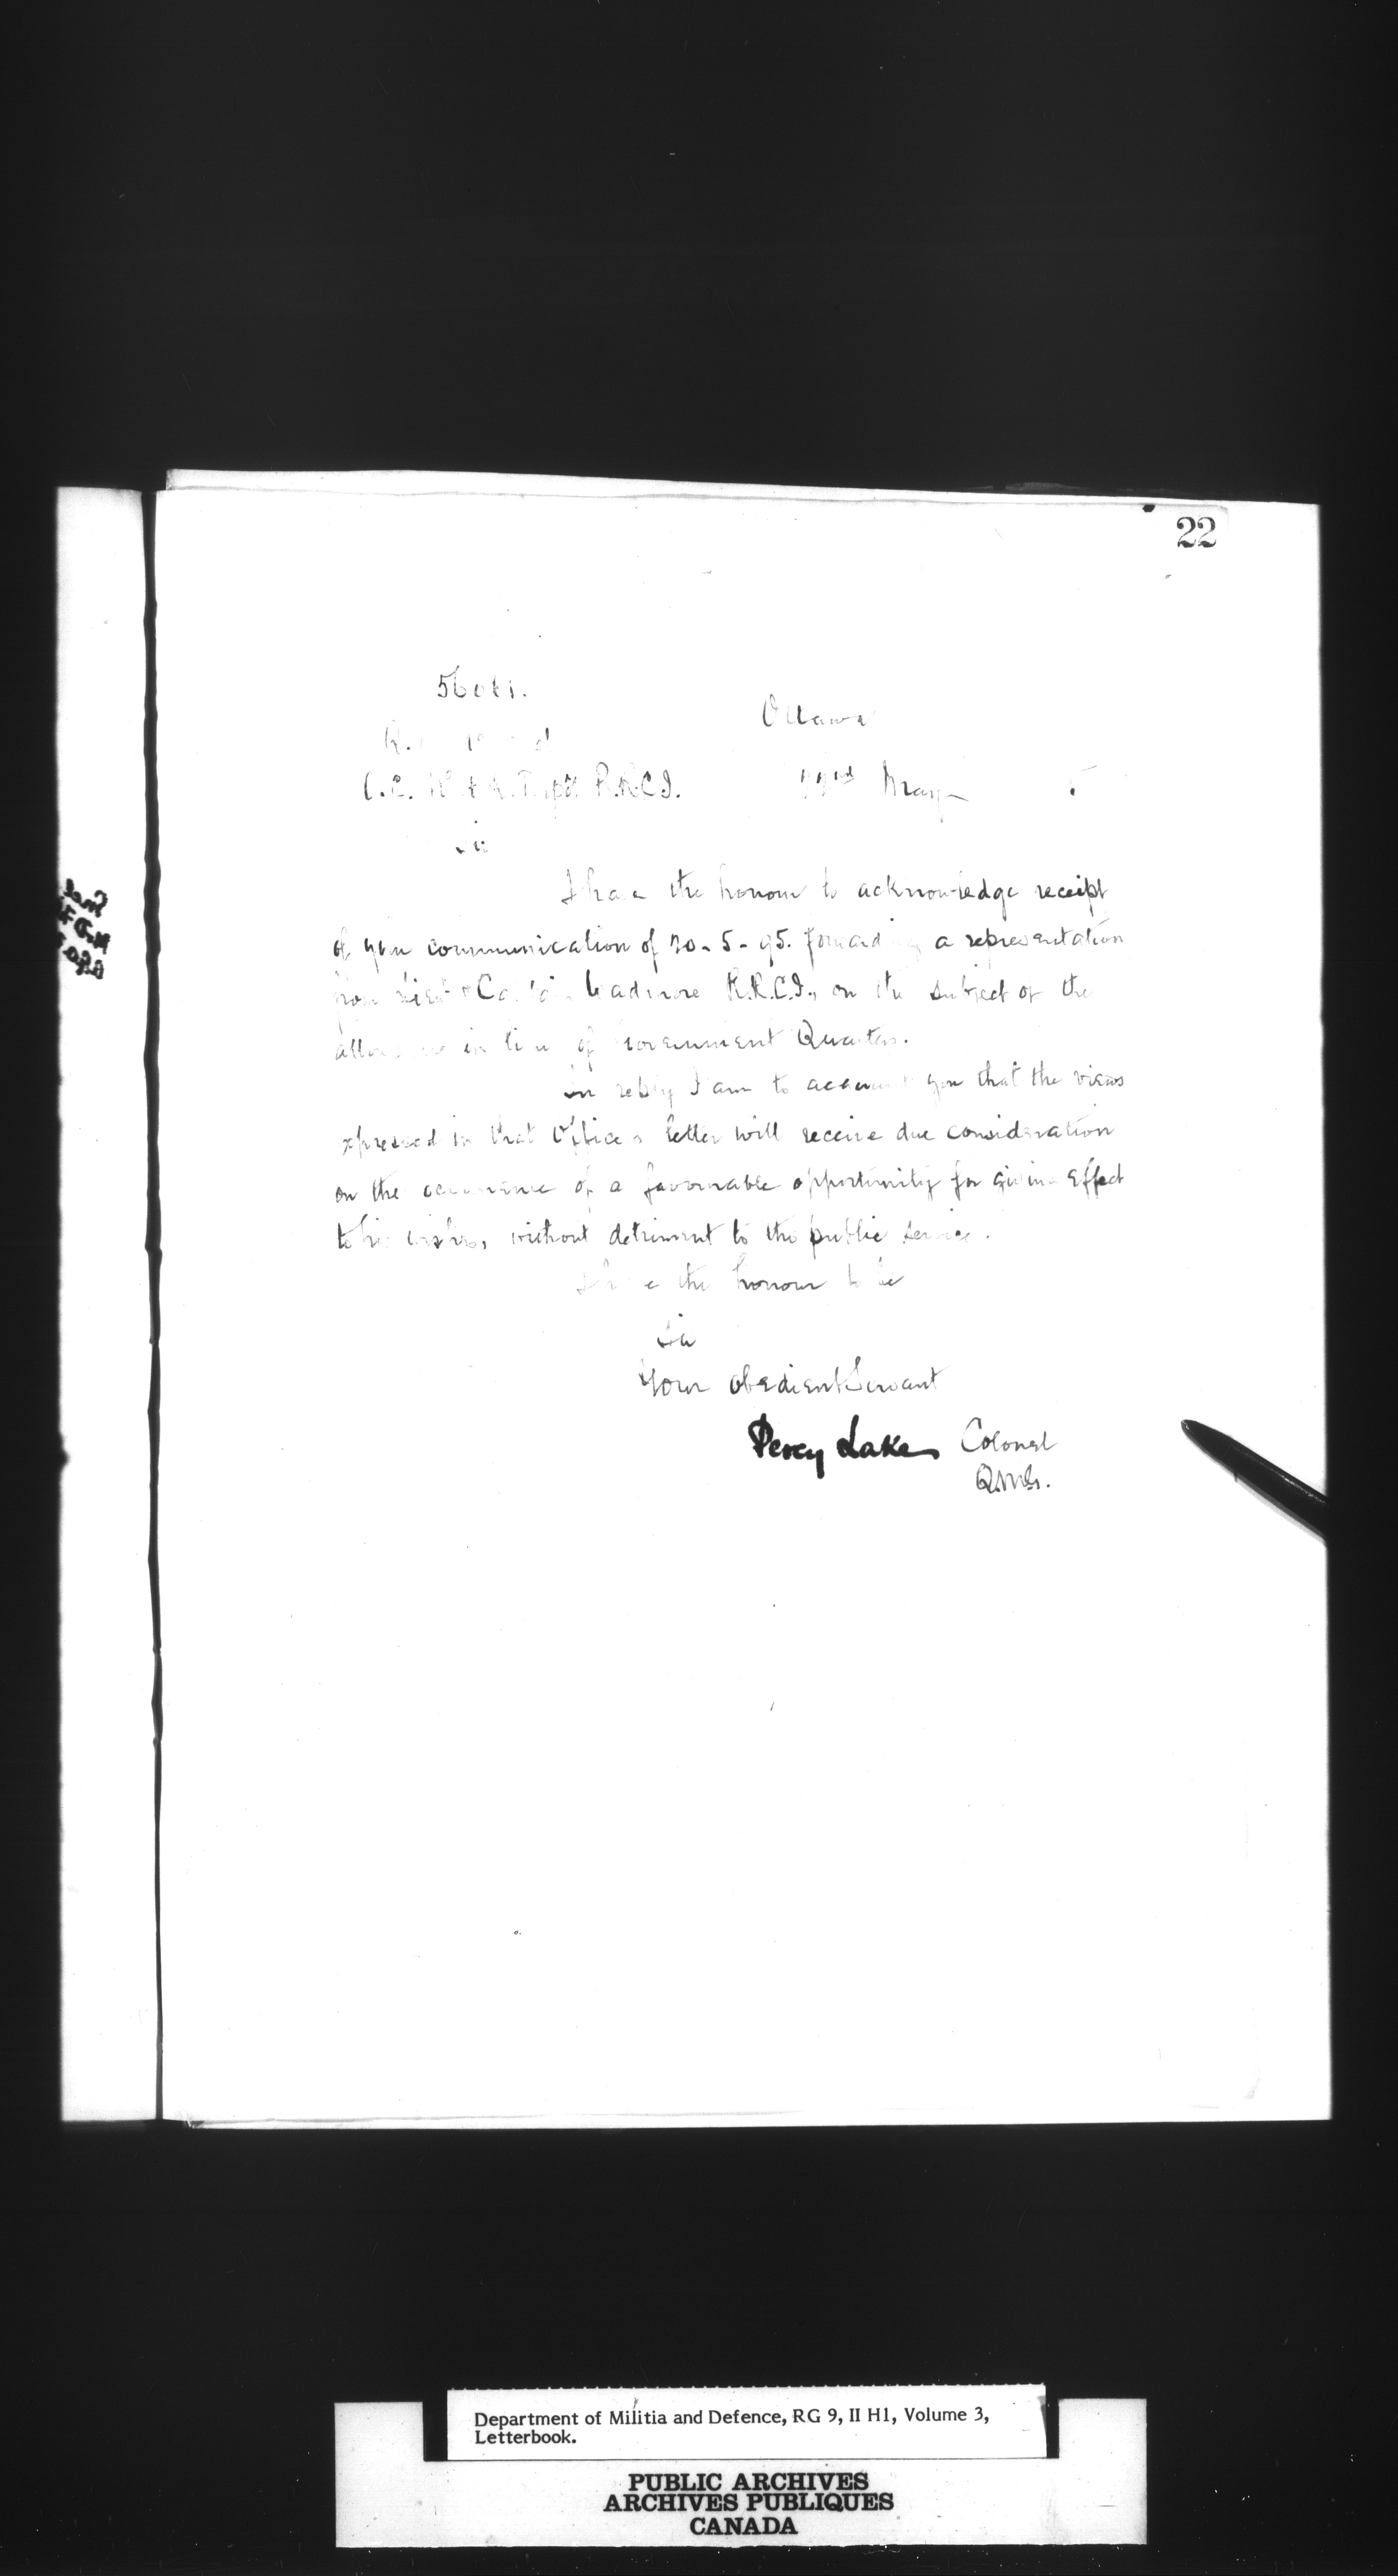 22
Ottawa
R.R.C.I.
May
Sir
I have the honour to acknowledge receipt
of your communication of 20-5-95. forwarding a representation
from Lieut & Capt. R.R.C.I., on the subject of the
allowance in lieu of Government Quarters.
In reply I am to you that the views
expressed in that Officers letter will receive due consideration
on the occurrence of a favourable opportunity for giving effect
to his wishes, without detriment to the public service.
I have the honour to be
Sir
Your obedient Servant
Percy Lake Colonel
Q.M.G.
Department of Militia and Defence, RG 9, II H1, Volume 3,
Letterbook.
PUBLIC ARCHIVES
ARCHIVES PUBLIQUES
CANADA